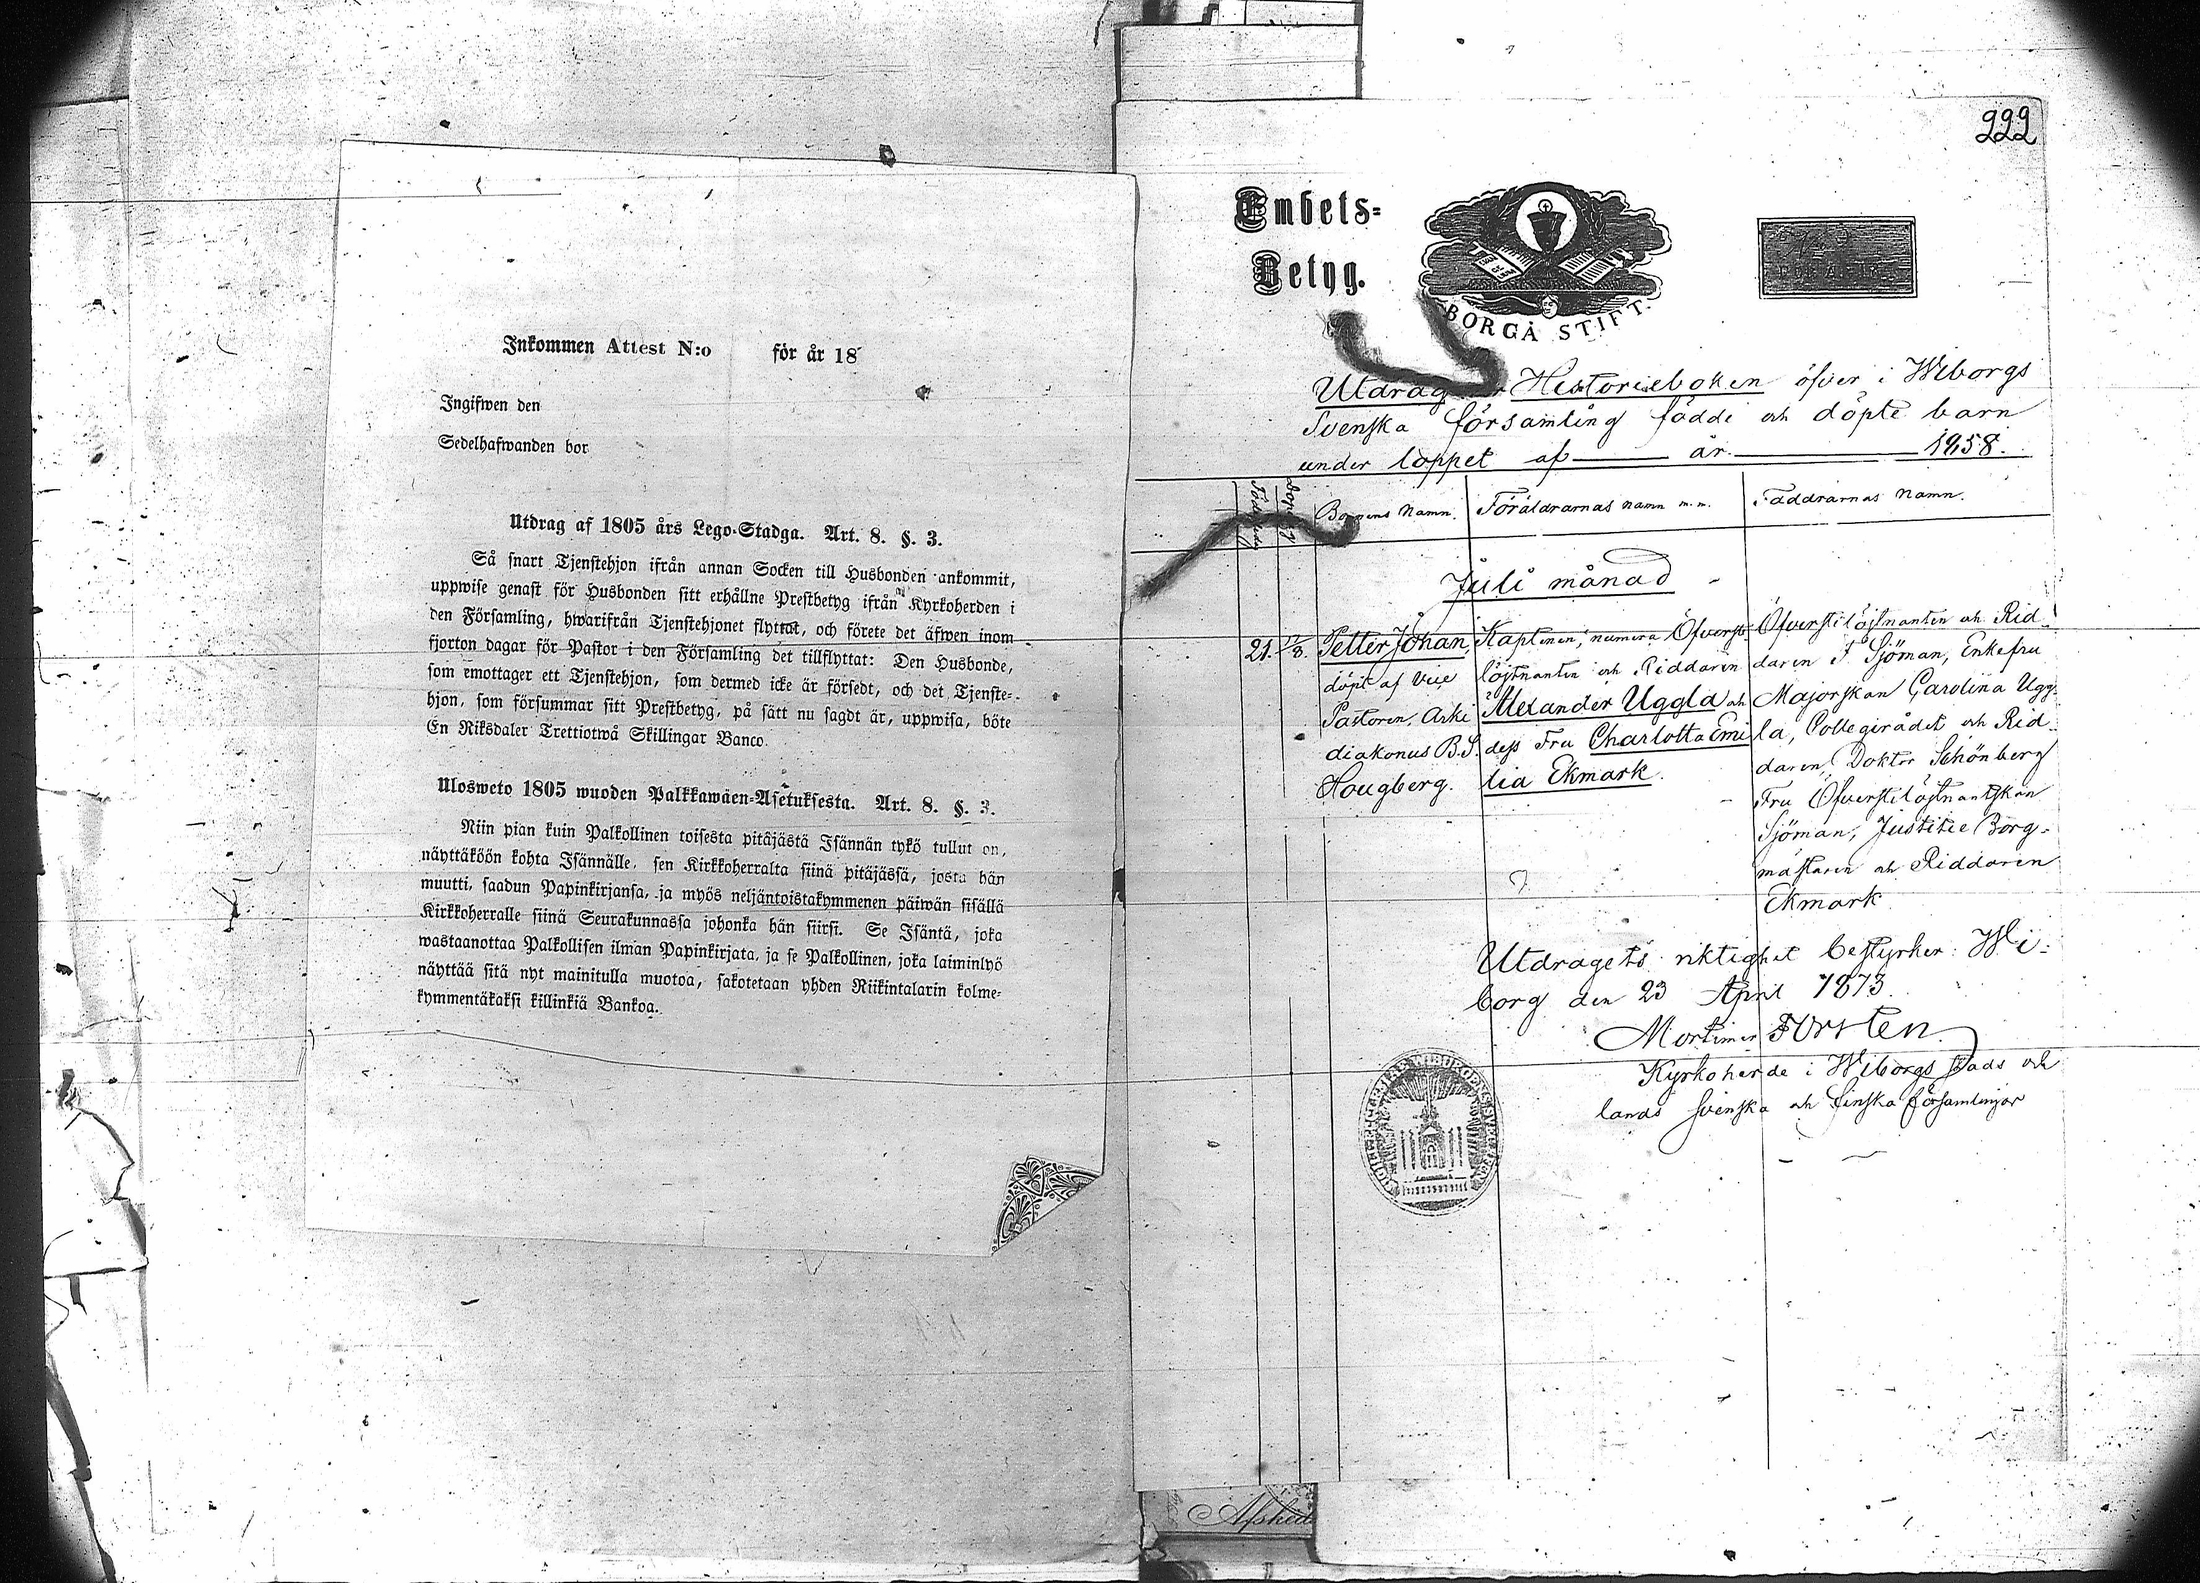 Inkommen Attest N:o för år 18
Ingifwen den
Sedelhafwanden bor
Utdrag af 1805 års Lego-Stadga. Art. 8. §. 3.
Så snart Tjenstehjon ifrån annan Socken till Husbonden ankommit,
uppwise genast för Husbonden sitt erhållne Prestbetyg ifrån Kyrkoherden i
den Församling, hwarifrån Tjenstehjonet flyttat, och förete det äfwen inom
fjorton dagar för Pastor i den Församling det tillflyttat: Den Husbonde,
som emottager ett Tjenstehjon, som dermed icke är försedt, och det Tjenste-
hjon, som försummar sitt Prestbetyg, på sätt nu sagdt är, uppwisa, böte
En Riksdaler Trettiotwå Skillingar Banco.
Ulosweto 1805 wuoden Palkkawäen-Asetuksesta. Art. 8. §. 3.
Niin pian kuin Palkollinen toisesta pitäjästä Isännän tykö tullut on,
näyttäköön kohta Isännälle, sen Kirkkoherralta siinä pitäjässä, josta hän
muutti, saadun Papinkirjansa, ja myös neljäntoistakymmenen päiwän sisällä
Kirkkoherralle siinä Seurakunnassa johonka hän siirsi. Se Isäntä, joka
wastaanottaa Palkollisen ilman Papinkirjata, ja se Palkollinen, joka laiminlyö
näyttää sitä nyt mainitulla muotoa, sakotetaan yhden Riikintalarin kolme-
kymmentäkaksi killinkiä Bankoa.
222
Embets-
Betyg.
BORGÅ STIFT.
Utdrag Historieboken öfver i Wiborgs
Svenska församling födde och döpte barn
under loppet af år 1858.
Barnens Namn. Föräldrarnas namn m.m. Faddrarnas Namn.
Juli månad
21. Petter Johan Kaptenen, numera Öfverste Öfverstelöjtnanten och Rid-
döpt af vice löjtnanten och Riddaren daren F Sjöman, Enkefru
Pastoren, Arki Alexander Uggla och Majorskan Carolina Ugg-
diakonus B.S. dess Fru Charlotta Emi la, Collegirådet och Rid-
Hougberg. lia Ekmark. daren, Doktor Schönberg
Fru Öfverstelöjtnantskan
Sjöman, Justitie Borg-
mästaren och Riddaren
Ekmark
Utdragets riktighet bestyrker: Wi-
borg den 23 April 1873.
Mortimer Forsten
Kyrkoherde i Wiborgs Stads och
lands Svenska och Finska församlingar
Afsked